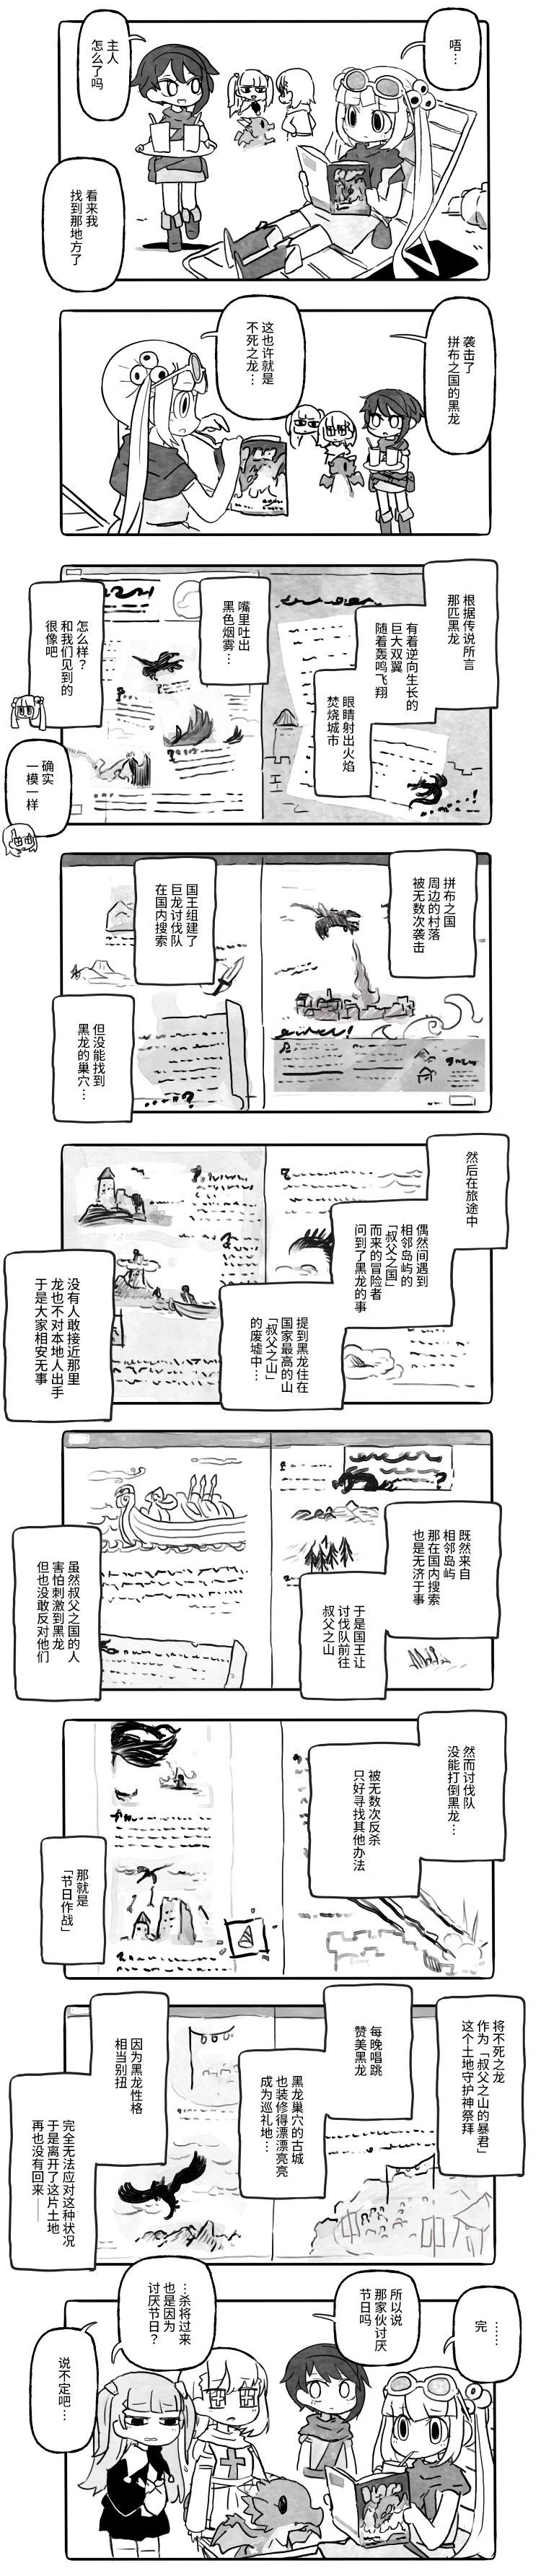 唔…
主人
怎么了吗
看来我
找到那地方了
袭击了
拼布之国的黑龙
这也许就是
不死之龙…
根据传说所言
那匹黑龙
有着逆向生长的
巨大双翼
随着轰鸣飞翔
眼睛射出火焰
焚烧城市
嘴里吐出
黑色烟雾…
怎么样？
和我们见到的
很像吧
确实
一模一样
拼布之国
周边的村落
被无数次袭击
国王组建了
巨龙讨伐队
在国内搜索
但没能找到
黑龙的巢穴…
然后在旅途中
偶然间遇到
相邻岛屿的
「叔父之国」
而来的冒险者
问到了黑龙的事
提到黑龙住在
国家最高的山
「叔父之山」
的废墟中…
没有人敢接近那里
龙也不对本地人出手
于是大家相安无事
既然来自
相邻岛屿
那在国内搜索
也是无济于事
于是国王让
讨伐队前往
叔父之山
虽然叔父之国的人
害怕刺激到黑龙
但也没敢反对他们
然而讨伐队
没能打倒黑龙…
被无数次反杀
只好寻找其他办法
那就是
「节日作战」
将不死之龙
作为「叔父之山的暴君」
这个土地守护神祭拜
每晚唱跳
赞美黑龙
黑龙巢穴的古城
也装修得漂漂亮亮
成为巡礼地…
因为黑龙性格
相当别扭
完全无法应对这种状况
于是离开了这片土地
再也没有回来——
……
完
所以说
那家伙讨厌
节日吗
…杀将过来
也是因为
讨厌节日？
说不定吧…